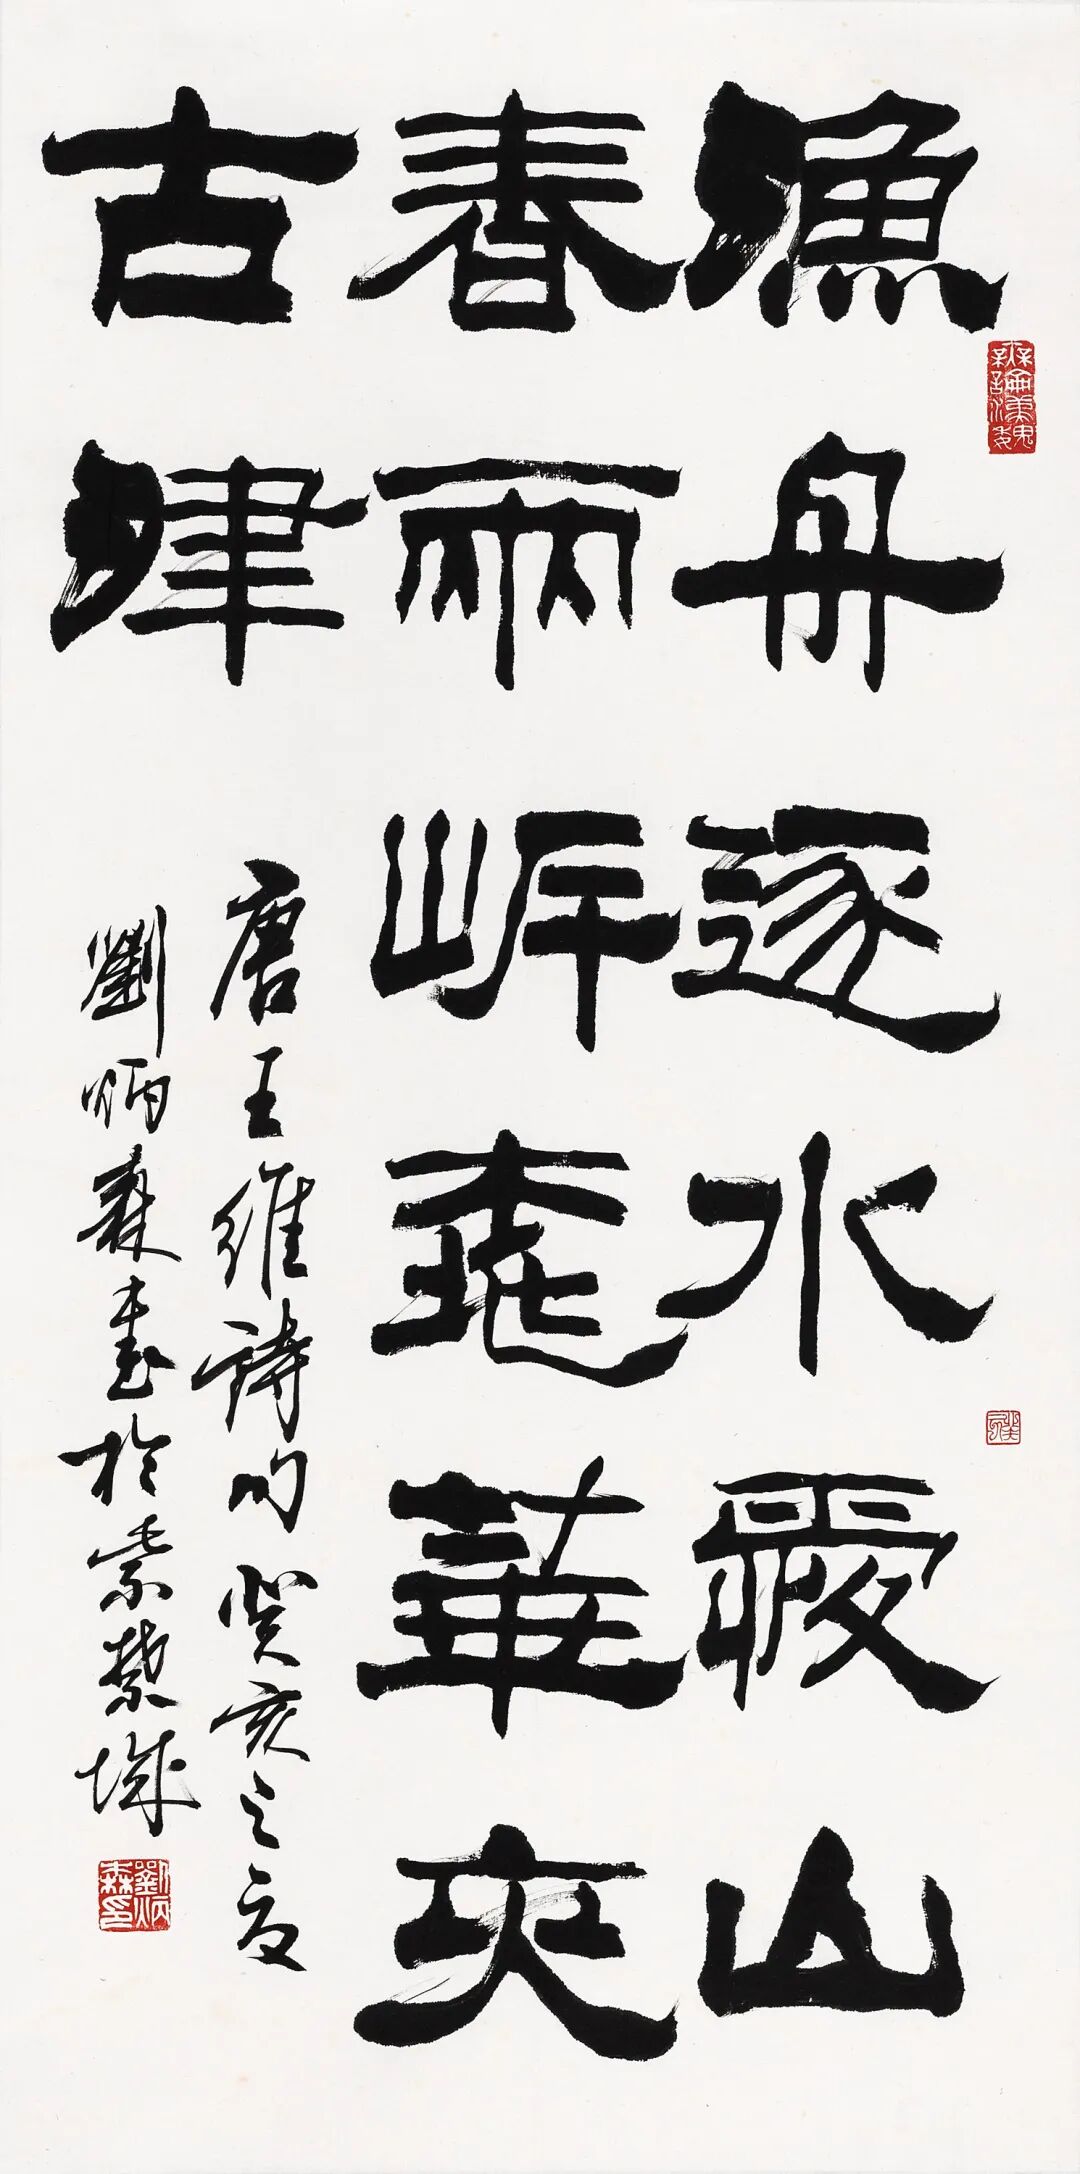 漁舟逐水愛山
春兩岸桃華夾
古津
唐王維詩句癸亥之夏
劉炳森書於紫禁城
劉炳森印